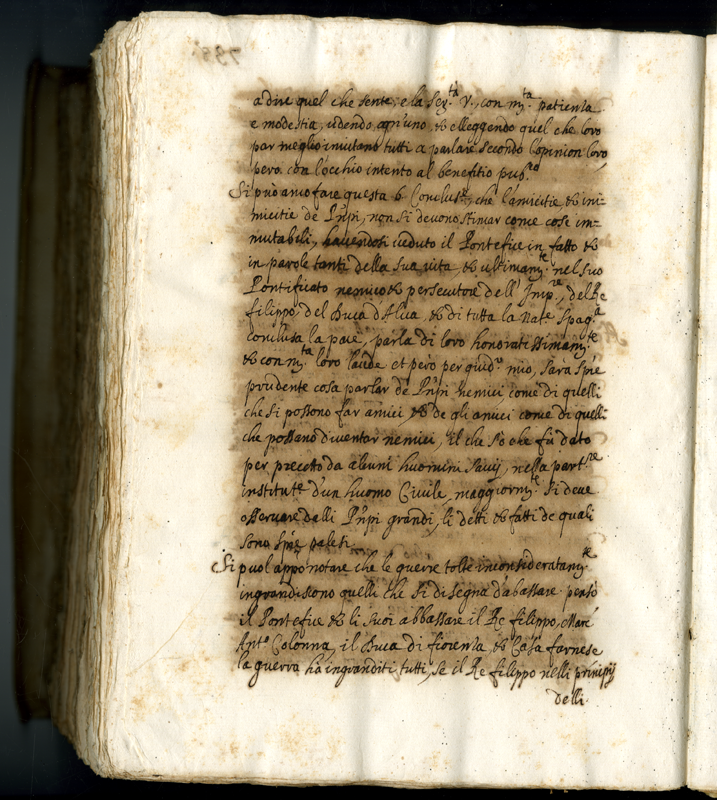 a dire quel che sente, e la Ser.tà V., con m.ta patienza
e modestia, udendo ogn'uno, et elleggendo quel che loro
par meglio invitano tutti a parlare secondo l'opinion loro,
però con l'occhio intento al benefitio pub.co
Si può anco fare questa b Conclus.e, che l'amicitie et ini=
micitie de Prīpi, non si devono stimar come cose im=
mutabili, havendosi veduto il Pontefice in fatto et
in parole tanti della sua vita, et ultimam.te nel suo
Pontificato nemico et persecutore dell'Imp.re, del Re
filippo, del Duca d'Alva, et di tutta la nat.e Spag.a
conclusa la pace, parla di loro honoratissimam.te
et con m.ta loro laude et però per giud.o mio, sarà spre
prudente cosa parlar de Prīpi nemici come di quelli
che si possono far amici, et de gli amici come di quelli
che possano diventar nemici, il che so che fù dato
per precetto da alcuni huomini savij, nella part.re
institut.e d'un huomo Civile, maggiorm.te si deve
osservare dalli Prīpi grandi, li detti et fatti de quali
sono spre palesi.
Si puol appo notare che le guerre tolte inconsideratam.te
ingrandiscono quelli che si disegna d'abassare pensò
il Pontefice et li suoi abbassare il Re filippo, Marc'
Ant.o Colonna, il Duca di fiorenza, et Casa farnese
la guerra ha ingranditi tutti, se il Re filippo nelli principij
delli